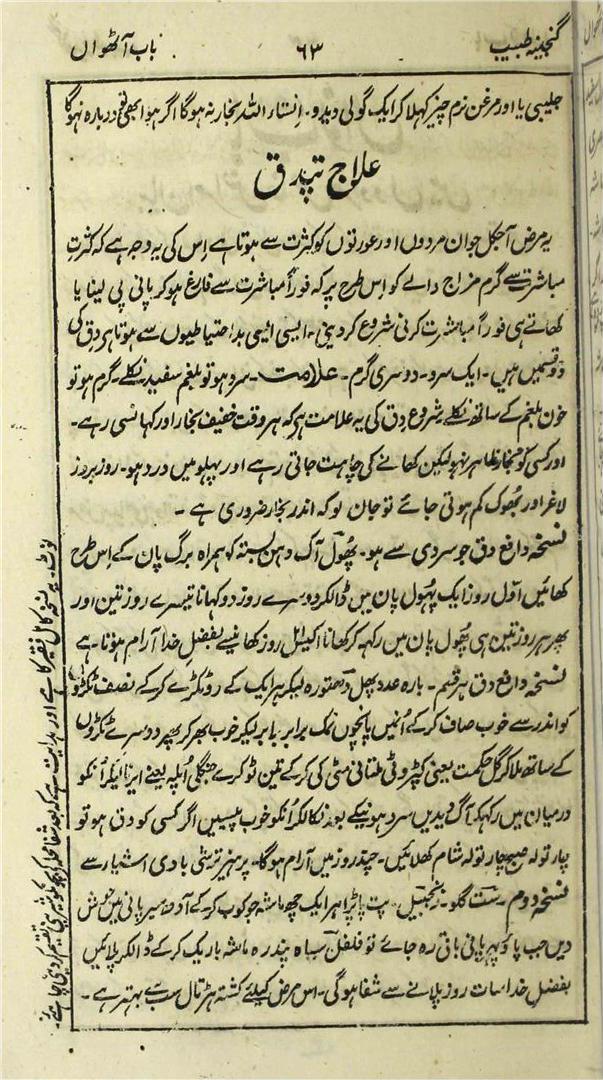 گنجینہ طبیب
۶۳
باب آٹھواں
جلیبی یا اور مرغن نرم چیز کہلا کر ایک گولی دیدو۔ انشاء اللہ بخار نہ ہوگا اگر ہوا بھی تو دوبارہ نہوگا
علاج تپدق
یہ مرض آجکل جوان مردوں اور عورتوں کو کثرت سے ہوتا ہے اِس کی یہ وجہ ہے کہ کثرتِ
مباشرت سے گرم مزاج والے کو اِس طرح پر کہ فوراً مباشرت سے فارغ ہو کر پانی پی لینا یا
کھاتے ہی فوراً مباشرت کرنی شروع کر دینی۔ ایسی ایسی بد احتیاطیوں سے ہوتا ہر دِق کی
دو قسمیں ہیں۔ ایک سرد۔ دوسری گرم۔ علامت۔ سرد ہو تو بلغم سفید نکلے۔ گرم ہو تو
خون بلغم کے ساتھ نکلے شروع دِق کی یہ علامت ہر کہ ہر وقت خفیف بخار اور کہانسی رہے۔
اور کسی کو بخار ظاہر نہو لیکن کھانے کی چاہت جاتی رہے اور پہلو میں درد ہو۔ روز بروز
لاغر اور بھوک کم ہوتی جائے تو جان لو کہ اندر بخار ضروری ہے۔
نسخہ دافع دق جو سردی سے ہو۔ پھول آک دہن بستہ کو ہمراہ برگ پان کے اِس طرح
کھائیں اوّل روز ایک پھول پان میں ڈالکر دوسرے روز دو کہانا تیسرے روز تین اور
پھر ہر روز تین ہی پھول پان میں رکہہ کر کھانا اکیس روز کھانیسے بفضلِ خدا آرام ہوتا ہے
نسخہ دافع دق ہر قسم۔ بارہ عدد پھل دھتورہ لیکر ہر ایک کے دو ٹکڑے کر کے نصف ٹکڑوں
کو اندر سے خوب صاف کر کے اُنیں پانچوں نمک برابر برابر لیکر خوب بھر کر پھر دوسرے ٹکڑوں
کے ساتھ ملا کر گل حکمت یعنی کپڑوٹی ملتانی مٹی کی کر کے تین ٹوکرے جنگلی اُپلہ یعنے ارنا لیکر اُنکو
درمیان میں رکہکر آگ دیدیں سرد ہونیکے بعد نکالکر اُنکو خوب پیسیں اگر کسی کو دق ہو تو
چار تولہ صبح چار تولہ شام کھلائیں۔ چند روز میں آرام ہوگا۔ پرہیز ترشی بادی اشیار سے
نسخہ دوم ست گلو۔ زنجبیل۔ پت پاپڑا ہر ایک چھ ماشہ جو کوب کر کے آدھ سیر پانی میں جوش
دیں جب پاؤ بھر پانی باقی رہ جائے تو فلفل سیاہ پندرہ ماشہ باریک کر کے ڈالکر پلائیں
بفضلِ خدا سات روز پلانے سے شفا ہوگی۔ اس مرض کیلئے کشتہ ہڑتال سب سے بہتر ہے۔
نوٹ۔ یہ نسخہ کامل فقیر کا ہے اور ہدایت ہے کہ بعد شفا